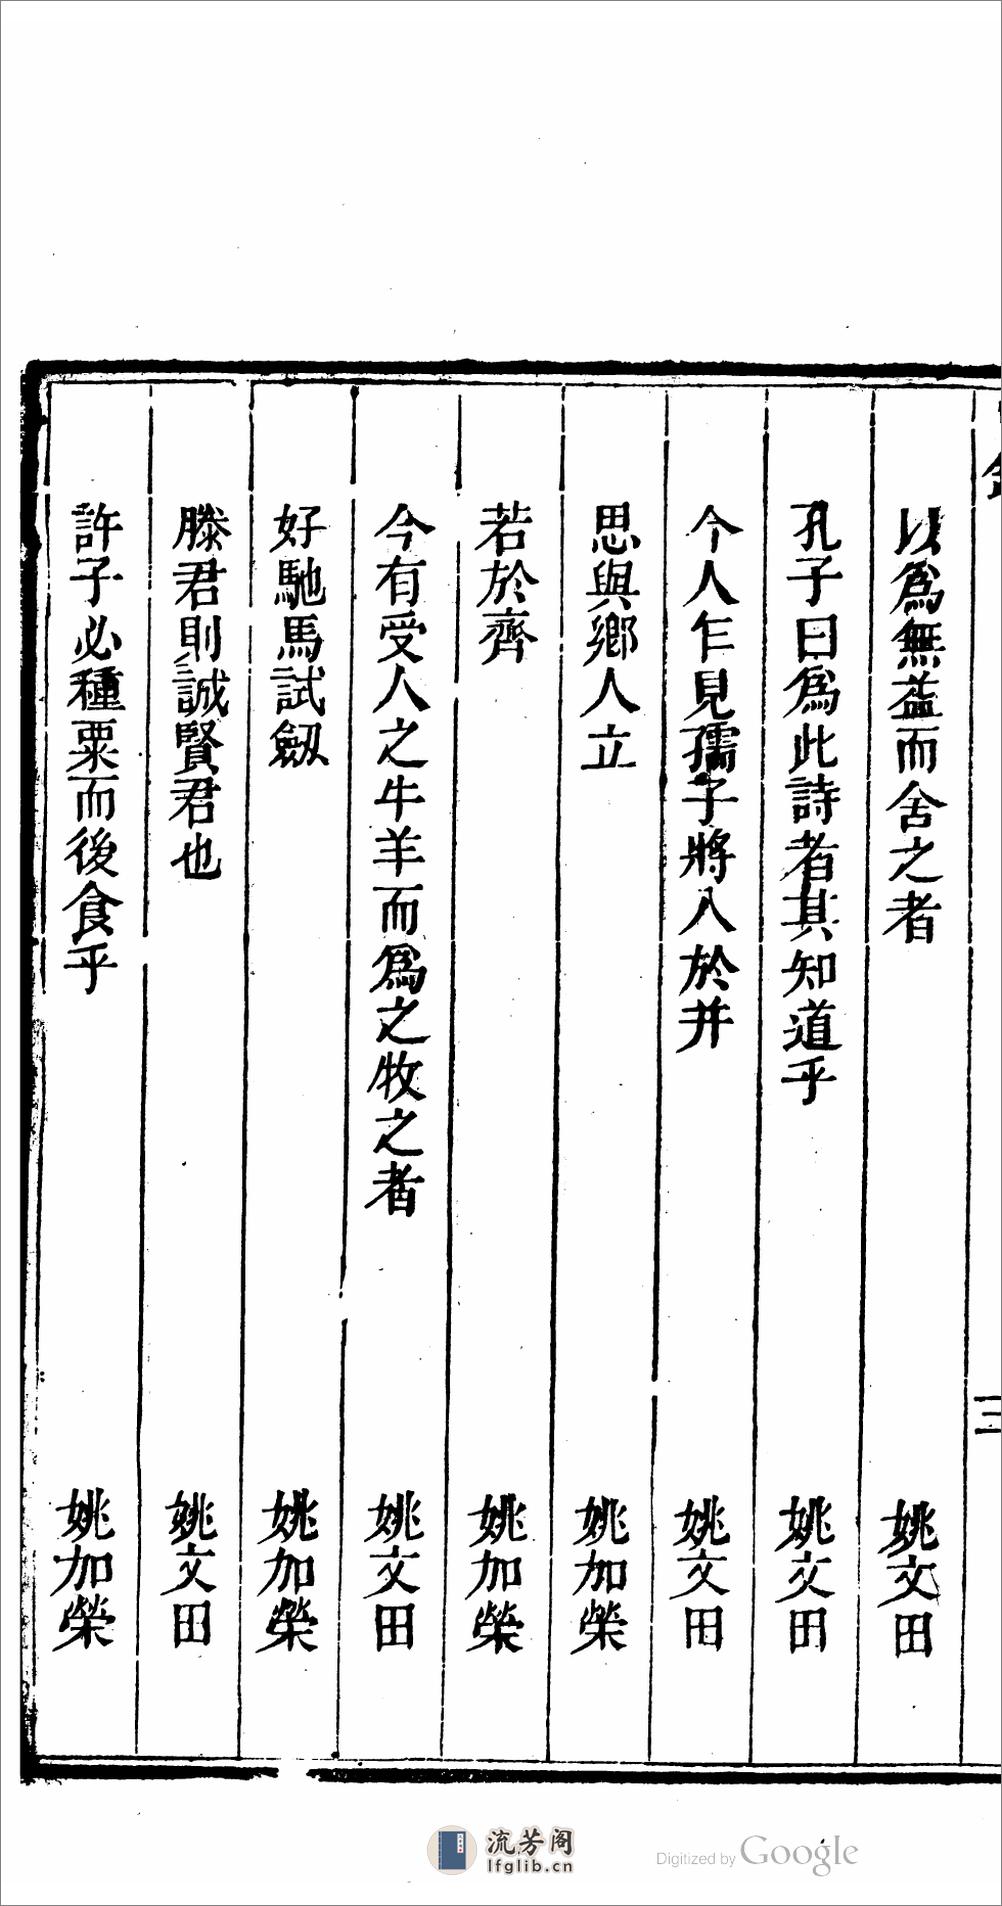 以爲無益而舍之者 姚文田
孔子曰爲此詩者其知道乎 姚文田
今人乍見孺子將入於井 姚文田
思與鄉人立 姚加榮
若於齊 姚加榮
今有受人之牛羊而爲之牧之者 姚文田
好馳馬試劔 姚加榮
滕君則誠賢君也 姚文田
許子必種粟而後食乎 姚加榮
三
流芳阁
lfglib.cn
Digitized by Google